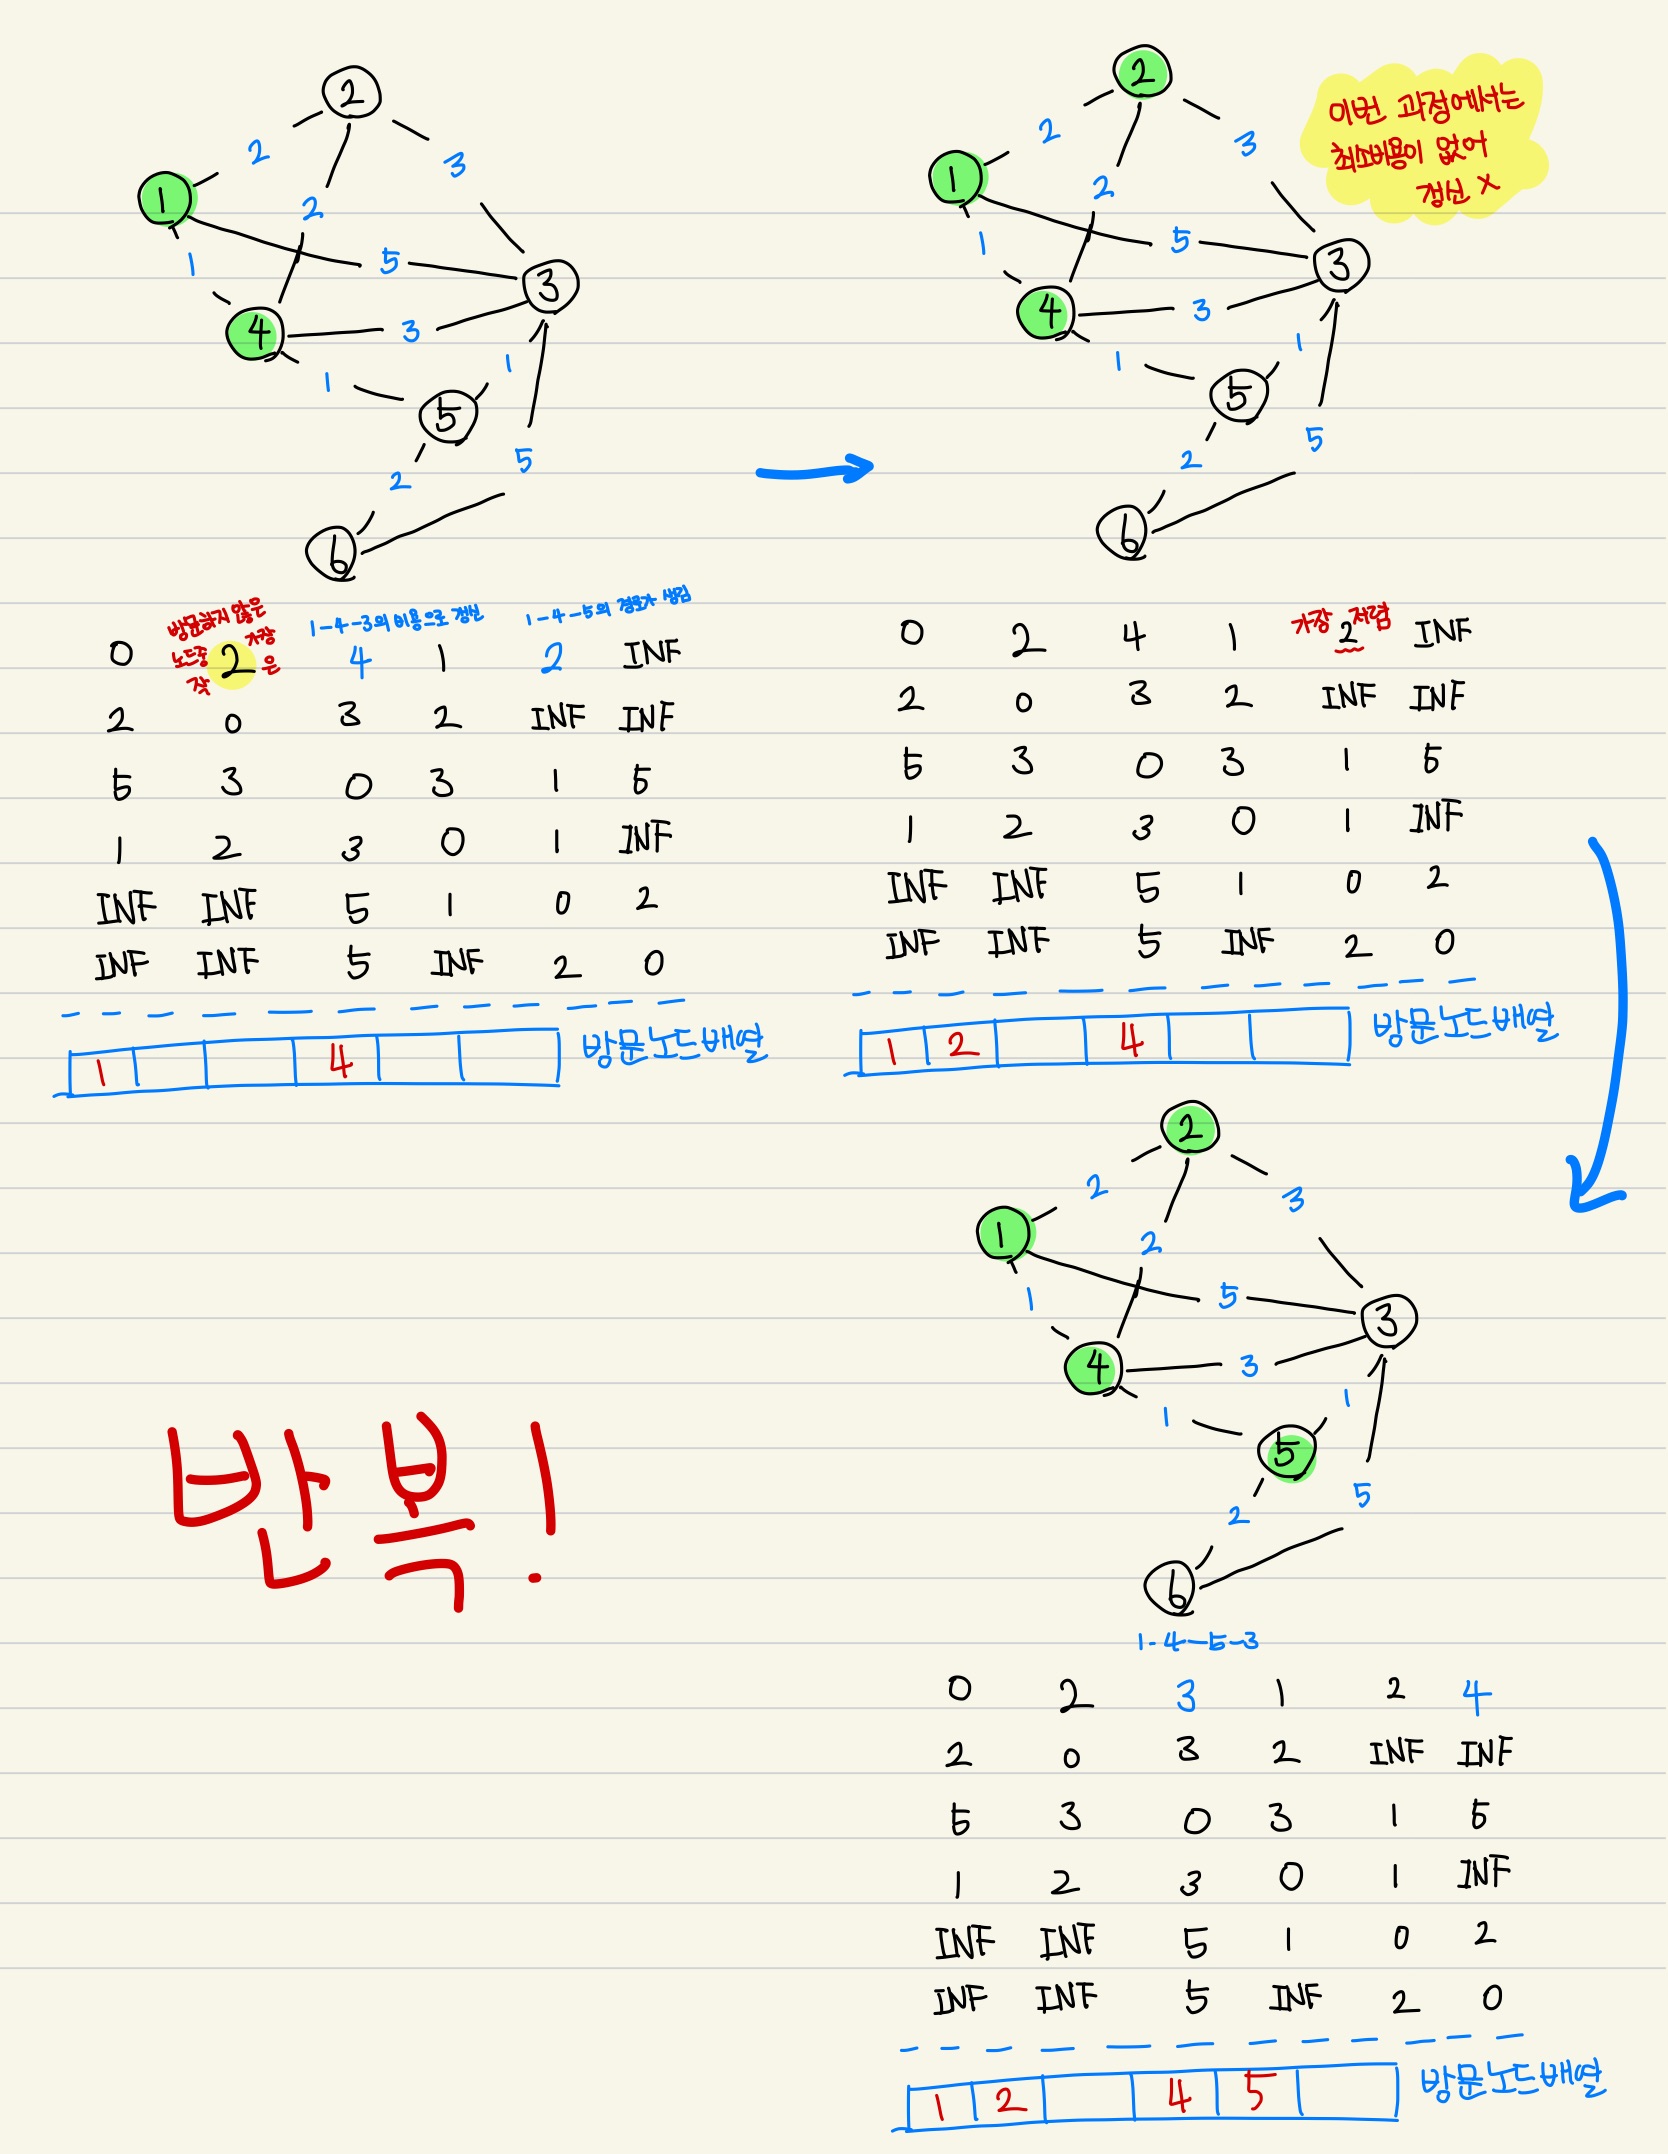 2
2
3
1
2
5
1
3
4
3
1
1
5
2
5
6
방문하지 않은
노드중 가장
작은
1-4-3의 비용으로 갱신
1-4-5의 경로가 생김
0 2 4 1 2 INF
2 0 3 2 INF INF
5 3 0 3 1 5
1 2 3 0 1 INF
INF INF 5 1 0 2
INF INF 5 INF 2 0
1 4
방문노드배열
2
이번 과정에서는
최소비용이 없어
갱신 X
2
3
1
2
5
1
3
4
3
1
1
5
2
5
6
가장 저렴
0 2 4 1 2 INF
2 0 3 2 INF INF
5 3 0 3 1 5
1 2 3 0 1 INF
INF INF 5 1 0 2
INF INF 5 INF 2 0
1 2 4
방문노드배열
반복!
2
2
3
1
2
5
1
3
4
3
1
1
5
2
5
6
1-4-5-3
0 2 3 1 2 4
2 0 3 2 INF INF
5 3 0 3 1 5
1 2 3 0 1 INF
INF INF 5 1 0 2
INF INF 5 INF 2 0
1 2 4 5
방문노드배열